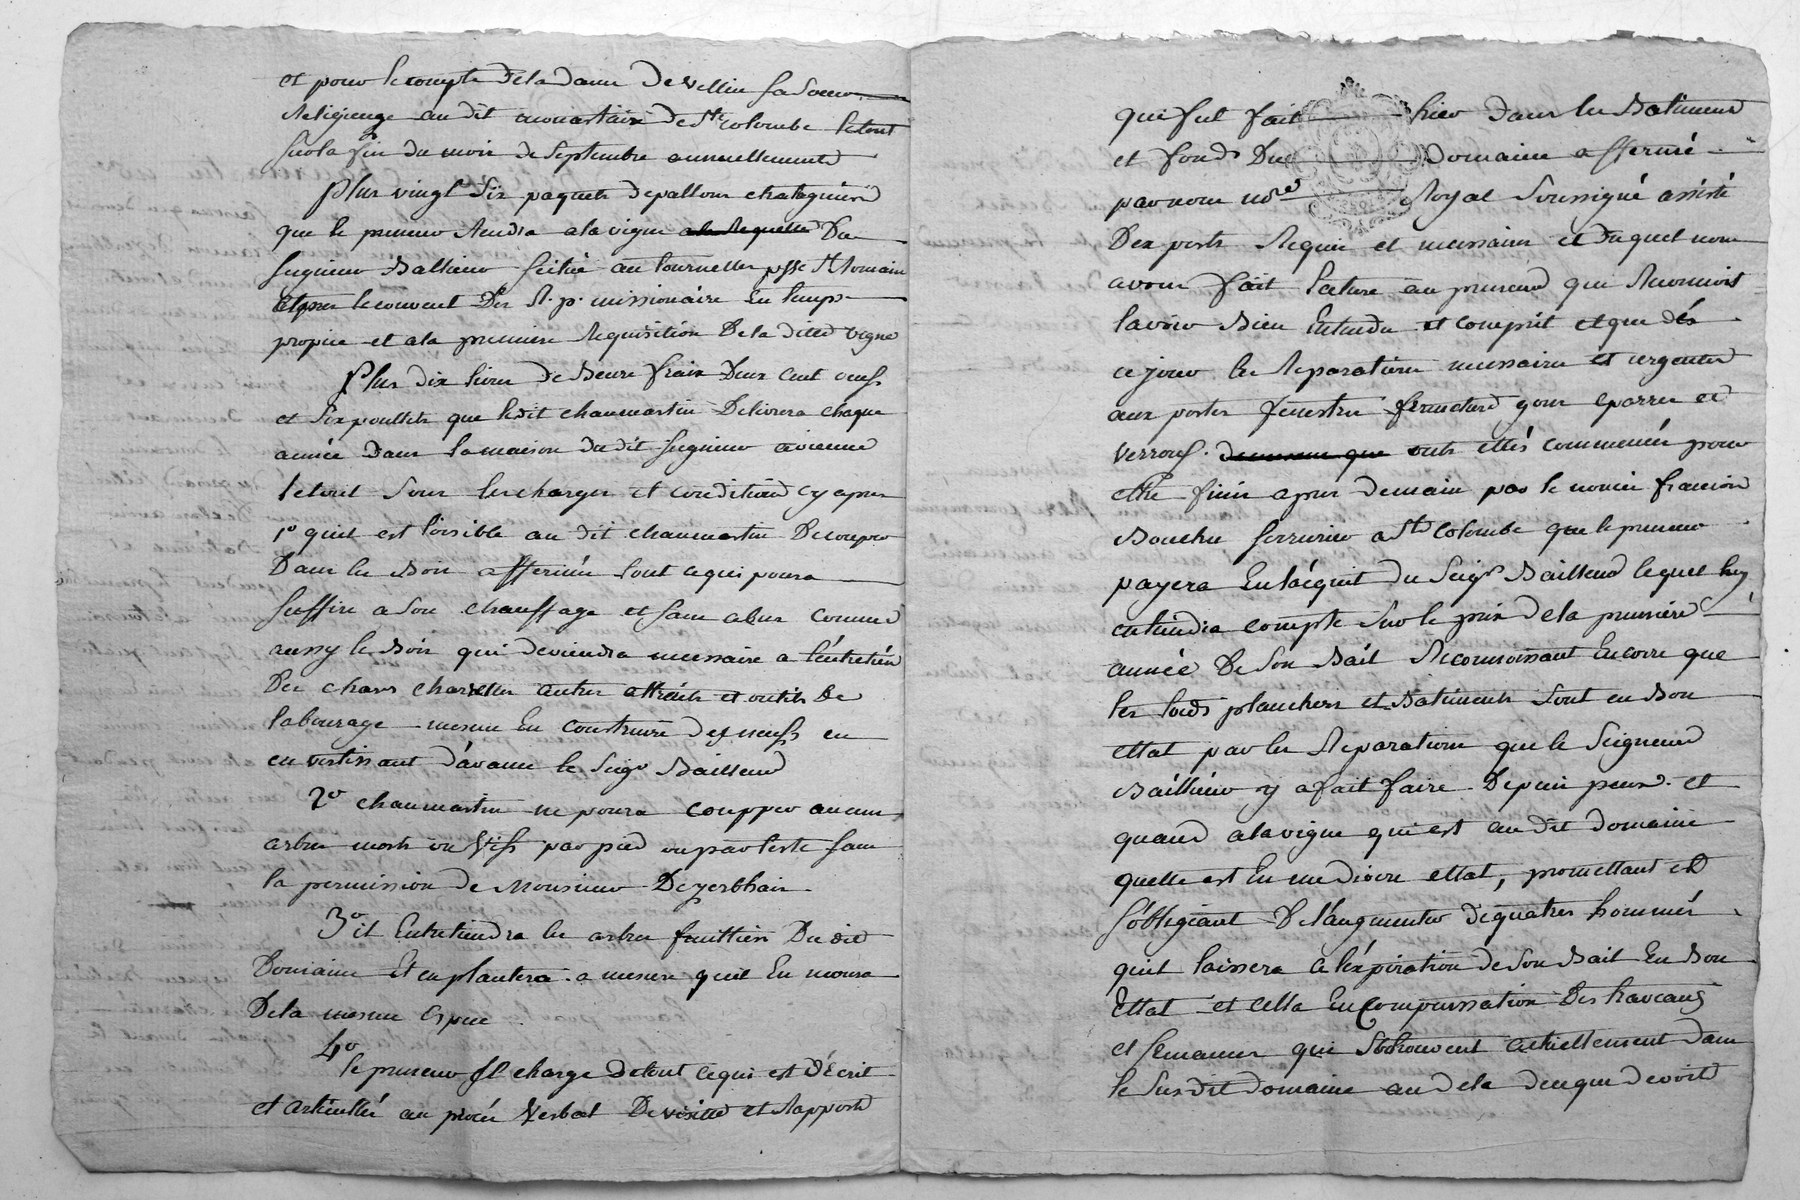 et pour le compte de la dame de vellin sa soeur
Religieuse au dit monastaire de Ste colombe le tout
sur la fin du mois de septembre annuellement
plus vingt six paquets de pallons chataguiers
que le preneur Rendra a la vigne a la Requette Du
seigneur Ballieur scitué au tournelles psse St Romain
et par le couvent Des R. p. missionaire En temps
propice et a la premiere Requisition De la ditte vigne
plus dix livres de Beure frais Deux cent oeufs
et six poullets que ledit chaumartin Delivrera chaque
année Dans la maison du dit seigneur a vienne
le tout sous les charges et conditions cy apres
1o quil est loisible au dit chaumartin De couper
Dans les Bois affermés tout ce qui poura
suffire a son chauffage et sans abus comme
aussy le Bois qui deviendra necessaire a l'entretien
Des chars charettes autres attraits et outils De
labourage mesme En construire des neufs en
en vertissant d'avance le seigr Bailleur
2o chaumartin ne poura coupper aucuns
arbres morts ou vifs par pied ou par teste sans
la permission de Monsieur Deyerbhais
3o il Entretiendra les arbres fruittiers Du dit
Domaine Et en plantera a mesure quil En moura
De la mesme Espece
4o
le preneur se charge de tout ce qui est d'Ecrit
et articullés au procés Verbal De visitte et Rapport
qui fut fait hier dans les Batiments
et fonds Du Domaine affermé
par nous nore Royal soussigné assisté
Des perts Requis et necessaires et duquel nous
avons fait lecture au preneur qui Reconnoit
lavoir Bien Entendu et comprit et que dés
ce jour les Reparations necessaires et urgentes
aux portes fenestres fermetures gons eparres et
verrouf. onts ettés commencés pour
etre finis apres demain par le nommé francois
Bouchu serrurier a Ste Colombe que le preneur
payera En l'acquit du seigr Bailleur lequel luy
en tiendra compte sur le prix de la premiere
année De son Bail Reconnoissant Encorre que
les toits planchers et Batiments sont en Bon
ettat par les Reparations que le Seigneur
Bailleur y a fait faire Depuis peux et
quand a la vigne qui est au dit domaine
quelle est En mediocre ettat, promettant et
s'obligeant De l'augmenter de quatres hommés
quil laissera a l'expiration de son Bail En Bon
Ettat et cella En compenssation Des travaux
et semances qui se trouvent actuellement dans
le susdit domaine au dela de ce que devoit